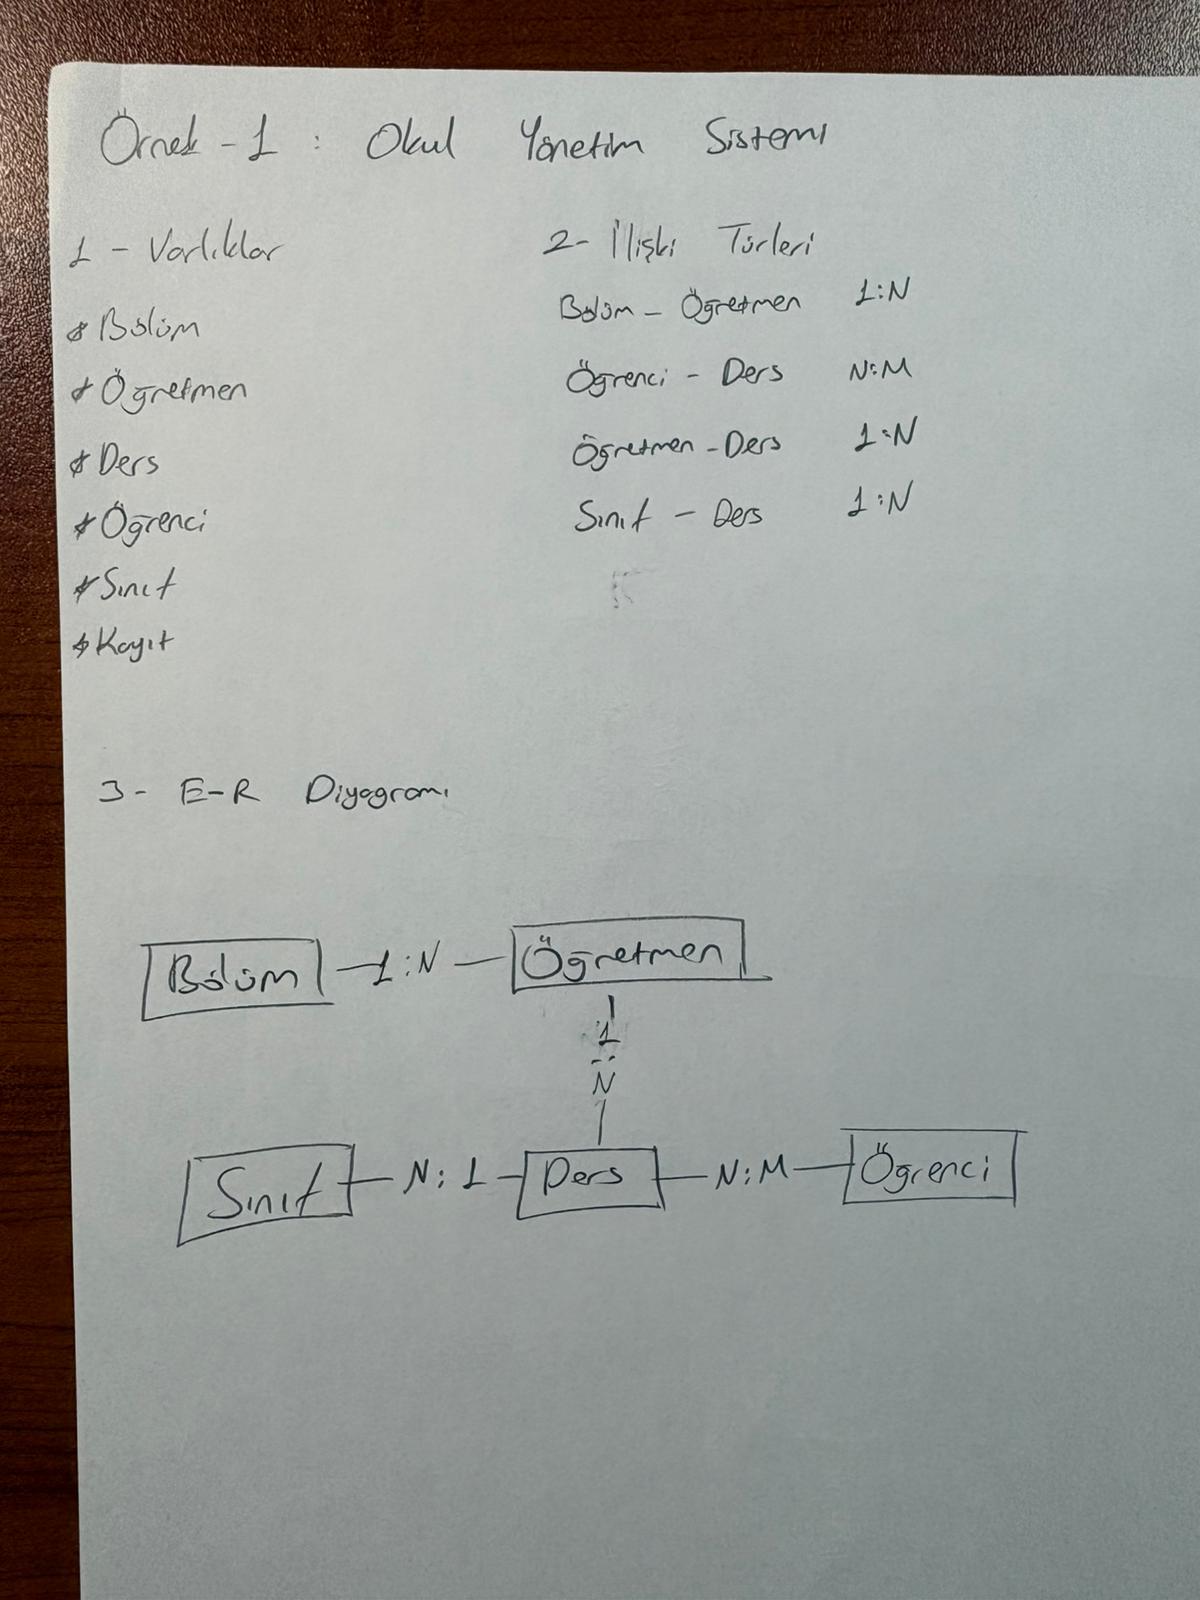 Örnek - 1 : Okul Yönetim Sistemi
1 - Varlıklar
* Bölüm
* Öğretmen
* Ders
* Öğrenci
* Sınıf
* Kayıt
2- İlişki Türleri
Bölüm - Öğretmen 1:N
Öğrenci - Ders N:M
Öğretmen - Ders 1:N
Sınıf - Ders 1:N
3- E-R Diyagramı
Bölüm 1:N Öğretmen
1
:
N
Sınıf N:1 Ders N:M Öğrenci